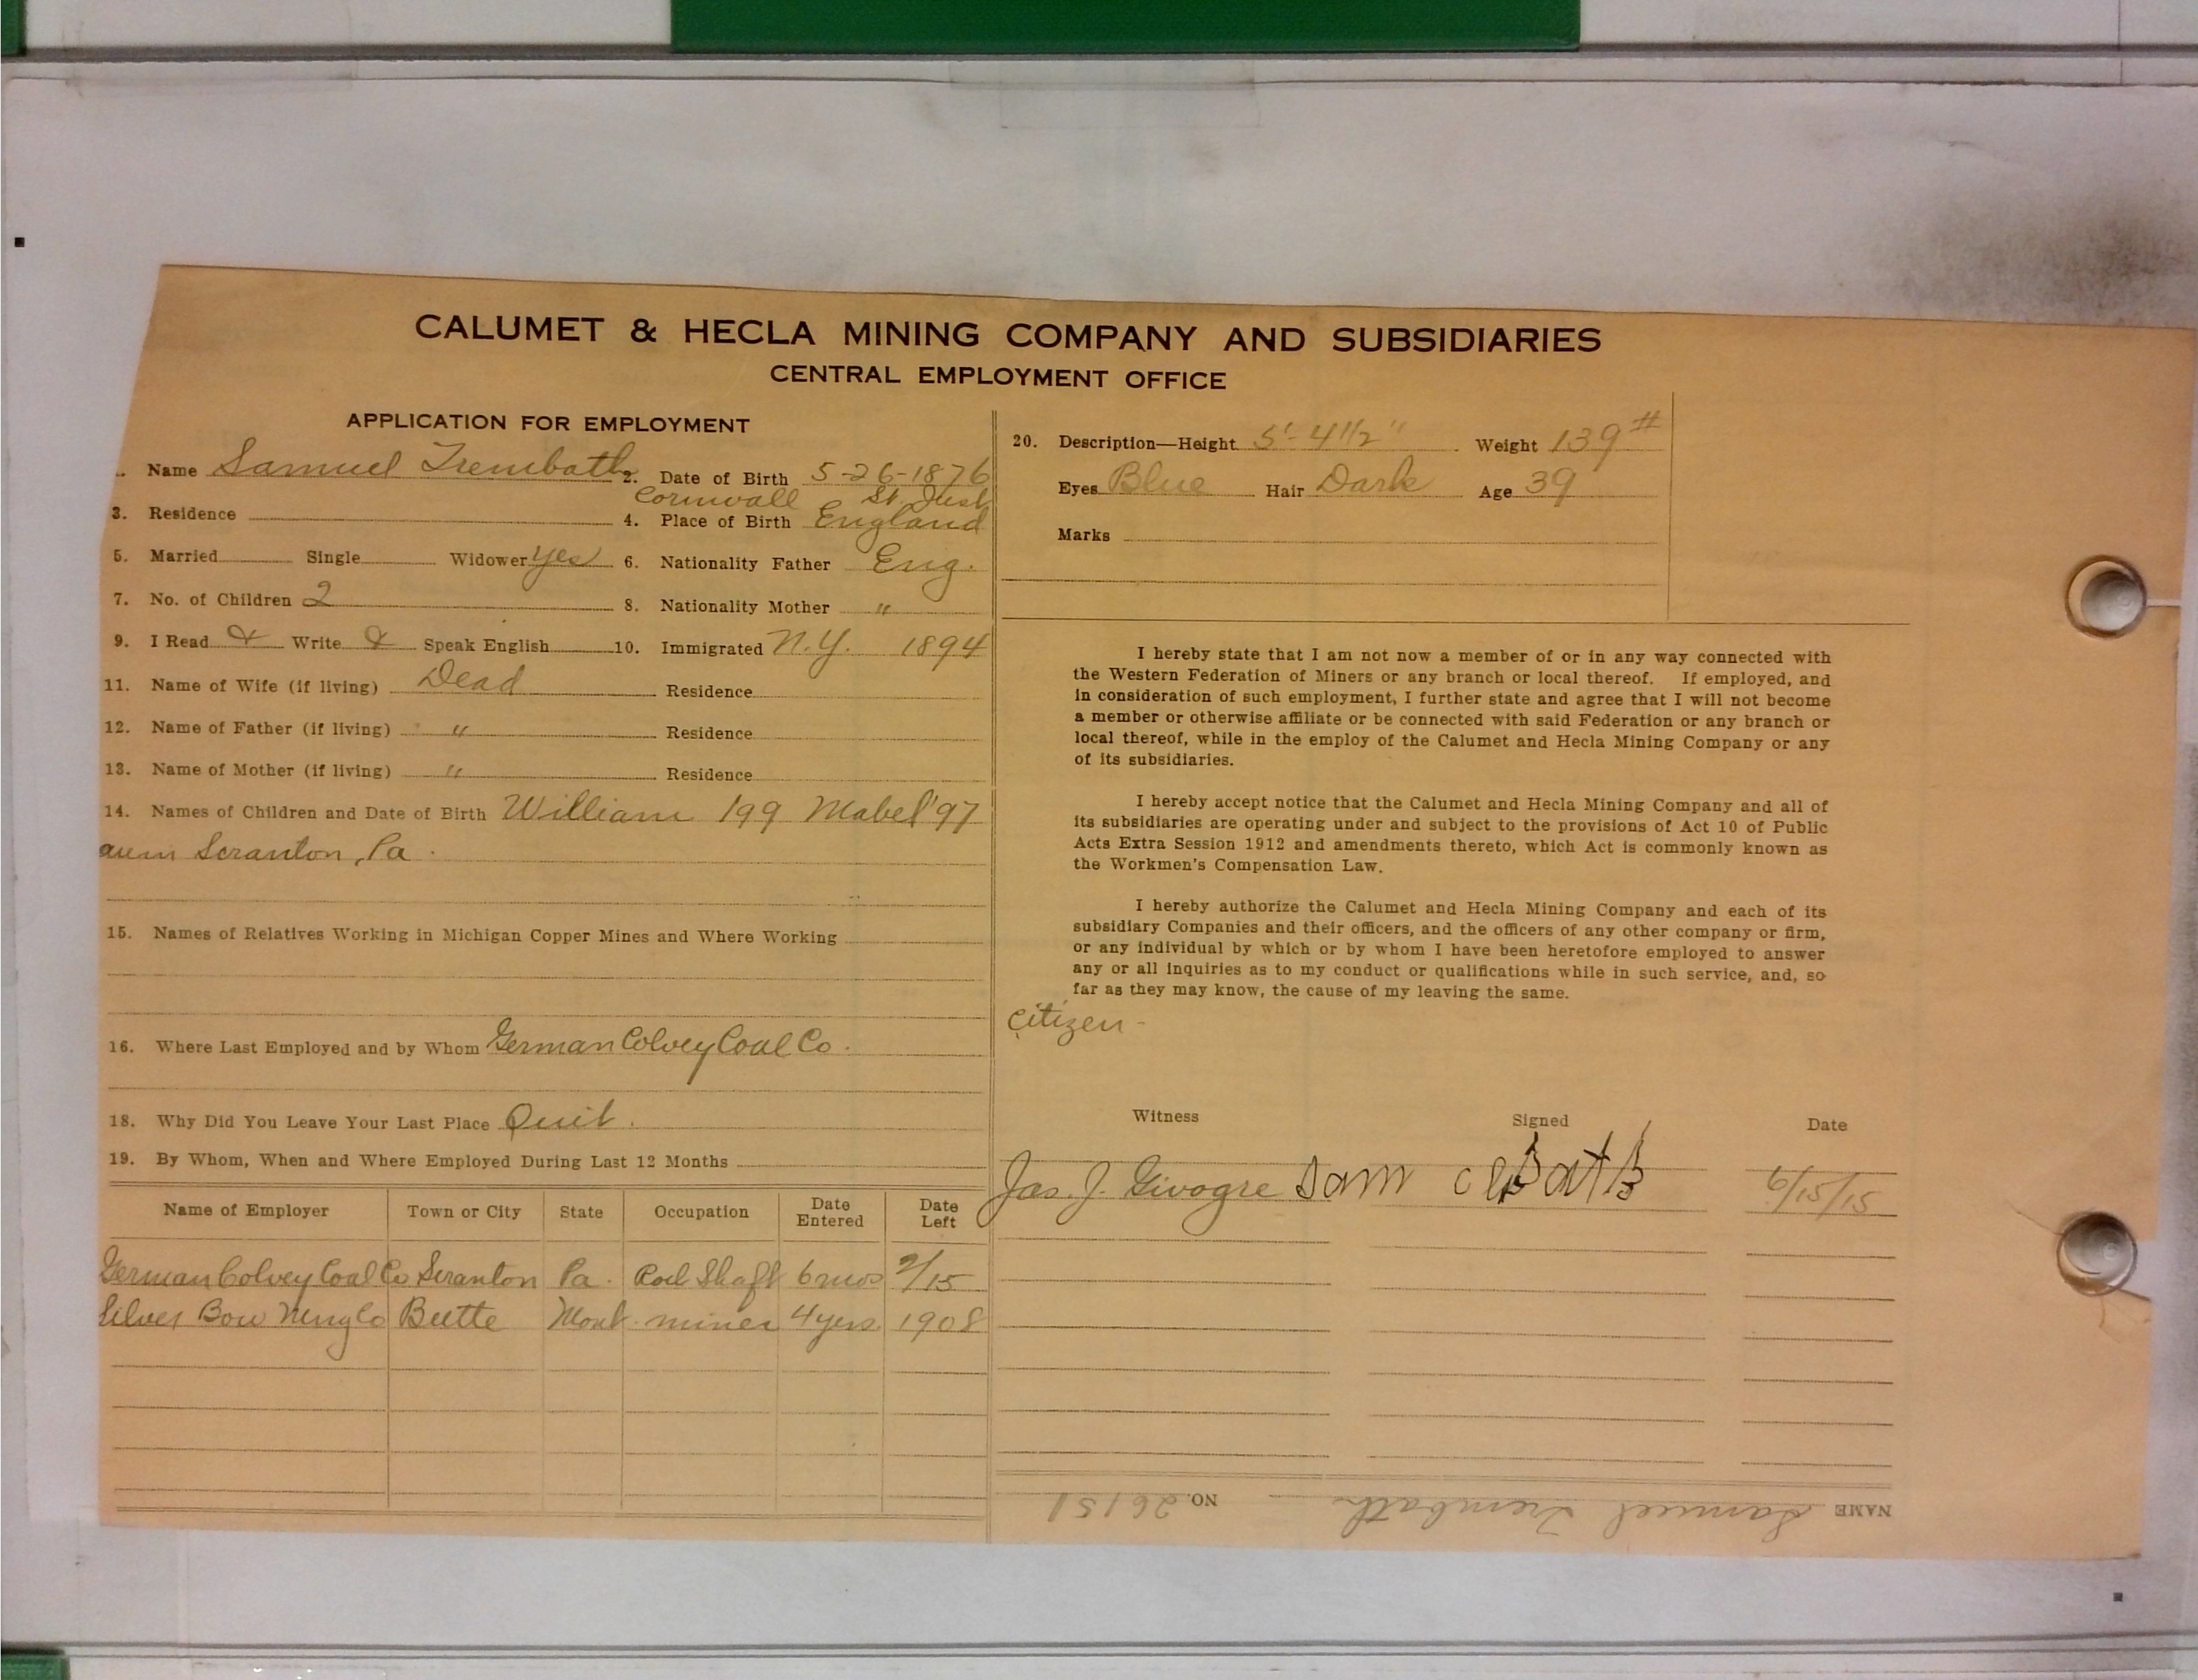 CALUMET & HECLA MINING COMPANY AND SUBSIDIARIES
CENTRAL EMPLOYMENT OFFICE
APPLICATION FOR EMPLOYMENT
Name Samuel Trembath 2. Date of Birth 5-26-1876
Cornwall St. Just
3. Residence 4. Place of Birth England
5. Married Single Widower yes 6. Nationality Father Eng.
7. No. of Children 2 8. Nationality Mother "
9. I Read & Write & Speak English 10. Immigrated N.Y. 1894
11. Name of Wife (if living) Dead Residence
12. Name of Father (if living) " Residence
13. Name of Mother (if living) " Residence
14. Names of Children and Date of Birth William 199 Mabel '97
Scranton, Pa.
15. Names of Relatives Working in Michigan Copper Mines and Where Working
16. Where Last Employed and by Whom German Colvey Coal Co.
18. Why Did You Leave Your Last Place Quit.
19. By Whom, When and Where Employed During Last 12 Months
Name of Employer Town or City State Occupation Date Entered Date Left
German Colvey Coal Co Scranton Pa. Shaft 6 mos 2/15
Silver Bow Butte Mont. miner 4 yrs. 1908
20. Description—Height 5'-4 1/2" Weight 139#
Eyes Blue Hair Dark Age 39
Marks
I hereby state that I am not now a member of or in any way connected with
the Western Federation of Miners or any branch or local thereof. If employed, and
in consideration of such employment, I further state and agree that I will not become
a member or otherwise affiliate or be connected with said Federation or any branch or
local thereof, while in the employ of the Calumet and Hecla Mining Company or any
of its subsidiaries.
I hereby accept notice that the Calumet and Hecla Mining Company and all of
its subsidiaries are operating under and subject to the provisions of Act 10 of Public
Acts Extra Session 1912 and amendments thereto, which Act is commonly known as
the Workmen's Compensation Law.
I hereby authorize the Calumet and Hecla Mining Company and each of its
subsidiary Companies and their officers, and the officers of any other company or firm,
or any individual by which or by whom I have been heretofore employed to answer
any or all inquiries as to my conduct or qualifications while in such service, and, so
far as they may know, the cause of my leaving the same.
Citizen -
Witness Signed Date
Jas. J. Givogre Sam 6/15/15
NAME Samuel Trembath NO. 26151